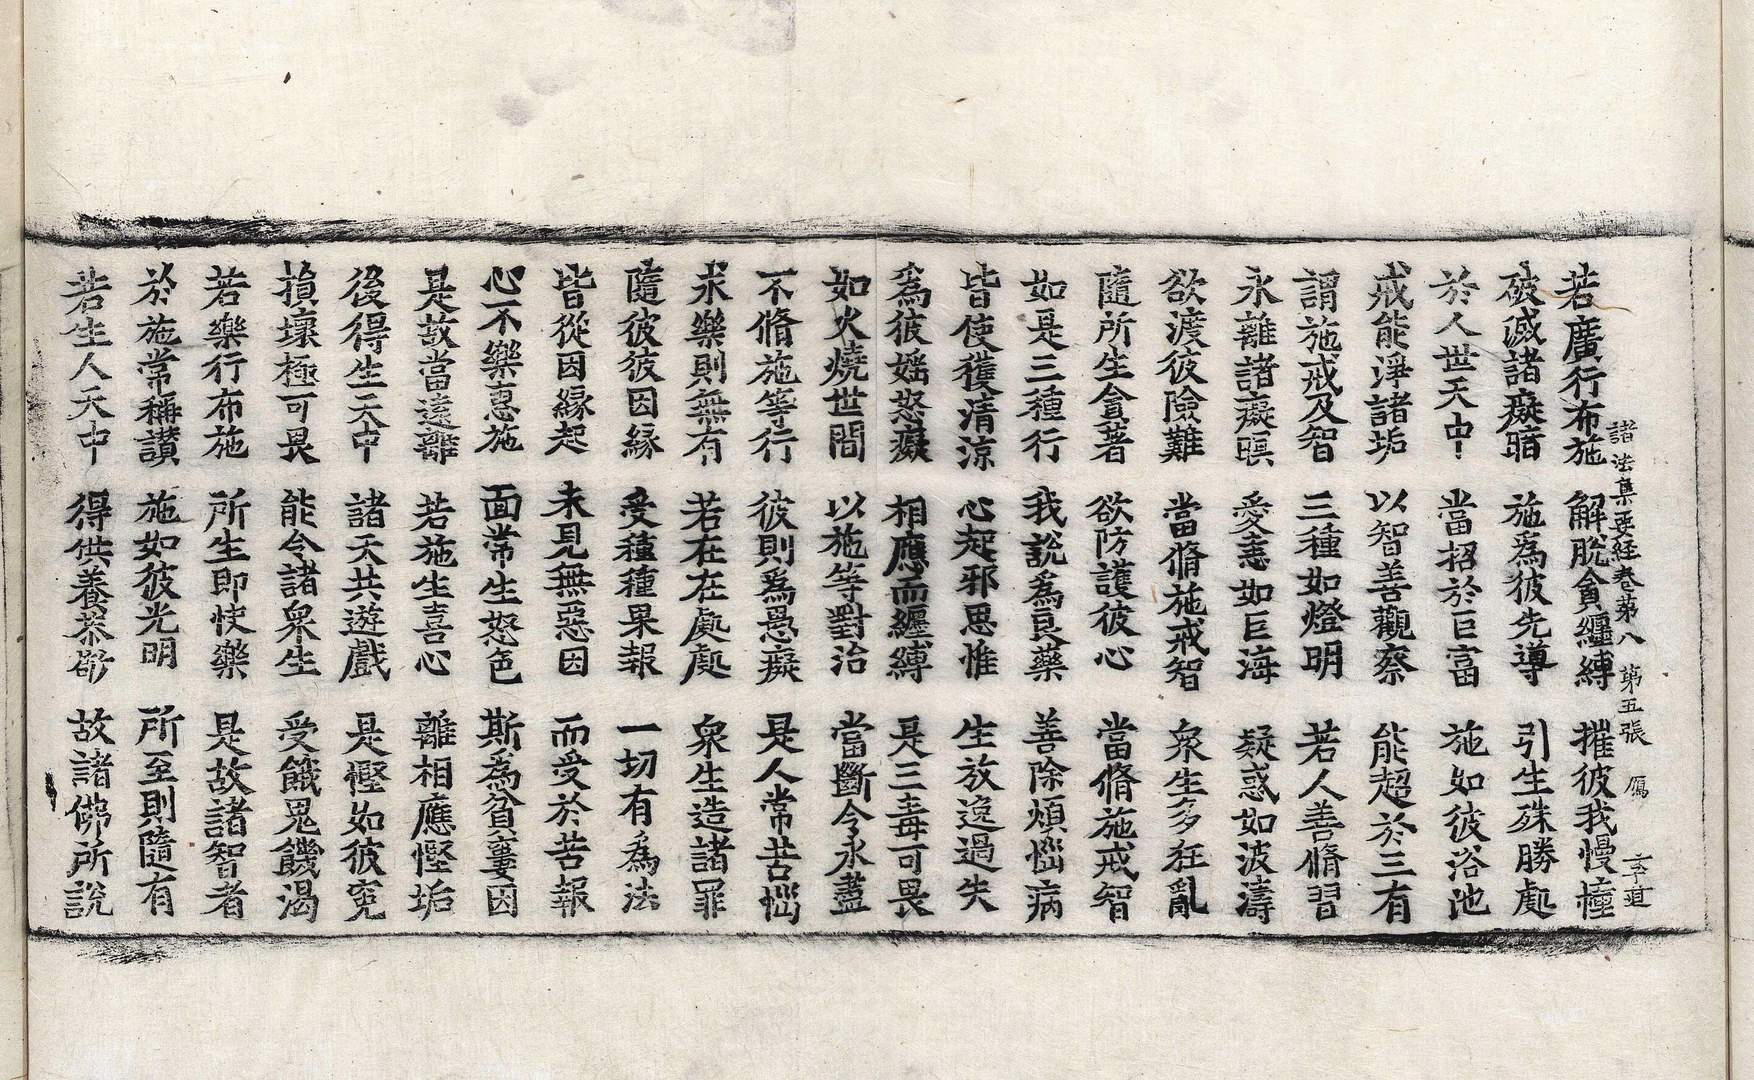 諸法集要經卷第八　第五張　鴈　李道
若廣行布施　解脫貪纏縛　摧彼我慢幢
破滅諸癡暗　施爲彼先導　引生殊勝處
於人世天中　當招於巨富　施如彼浴池
戒能淨諸垢　以智善觀察　能超於三有
謂施戒及智　三種如燈明　若人善脩習
永離諸癡暝　愛恚如巨海　疑惑如波濤
欲渡彼險難　當脩施戒智　衆生多狂亂
隨所生貪著　欲防護彼心　當脩施戒智
如是三種行　我說爲良藥　善除煩惱病
皆使獲清涼　心起邪思惟　生放逸過失
爲彼婬怒癡　相應而纏縛　是三毒可畏
如火燒世間　以施等對治　當斷令永盡
不脩施等行　彼則爲愚癡　是人常苦惱
求樂則無有　若在在處處　衆生造諸罪
隨彼彼因緣　受種種果報　一切有爲法
皆從因緣起　未見無惡因　而受於苦報
心不樂惠施　面常生怒色　斯爲貧窶因
是故當遠離　若施生喜心　離相應慳垢
後得生天中　諸天共遊戲　是慳如彼寃
損壞極可畏　能令諸衆生　受餓鬼饑渴
若樂行布施　所生即快樂　是故諸智者
於施常稱讚　施如彼光明　所至則隨有
若生人天中　得供養恭敬　故諸佛所說